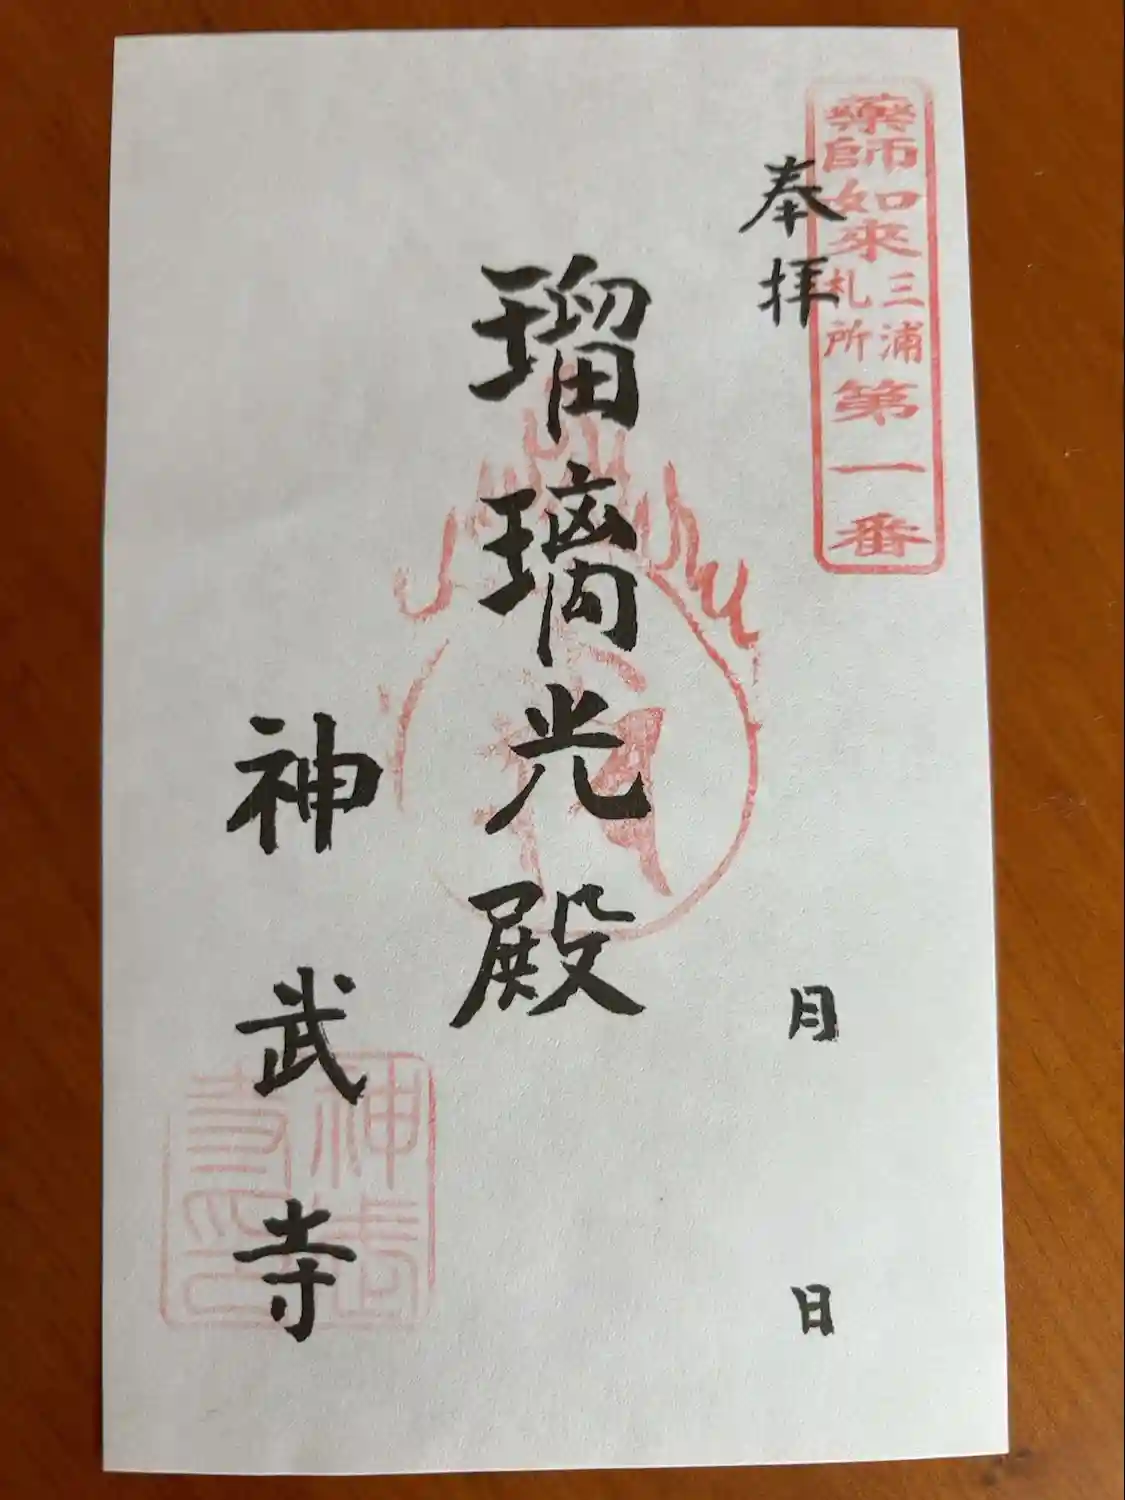 薬師如來三浦札所第一番
奉拝
月
日
瑠璃光殿
神武寺
神武寺印